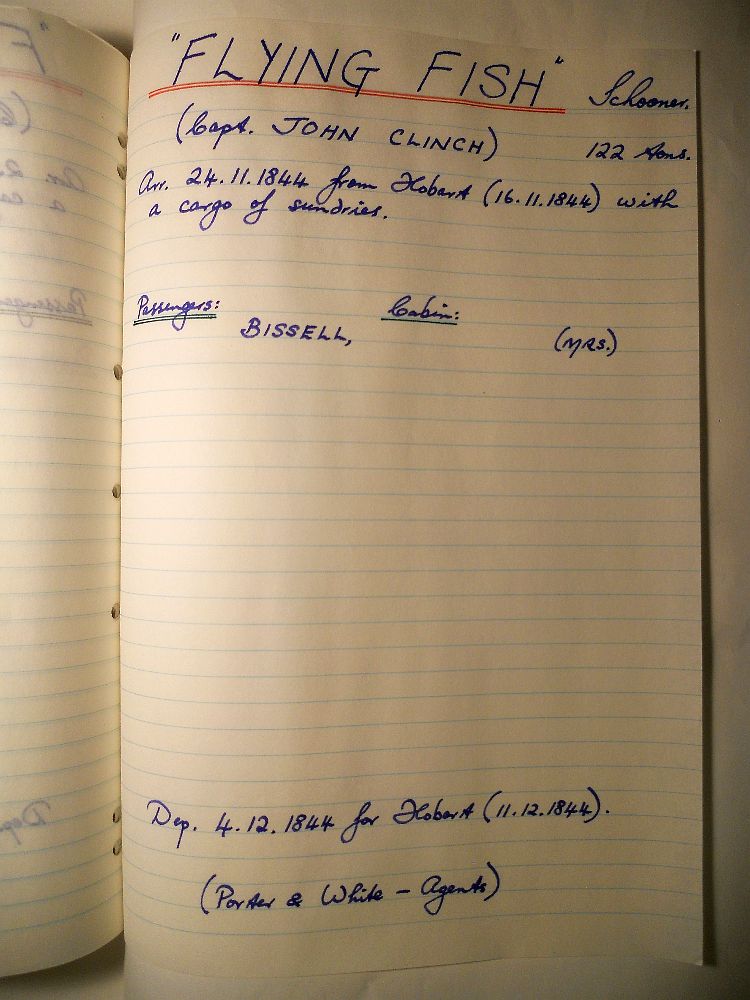 "FLYING FISH" Schooner.
(Capt. JOHN CLINCH) 122 tons.
Arr. 24.11.1844 from Hobart (16.11.1844) with
a cargo of sundries.
Passengers: Cabin:
BISSELL, (MRS.)
Dep. 4.12.1844 for Hobart (11.12.1844).
(Porter & White - Agents)